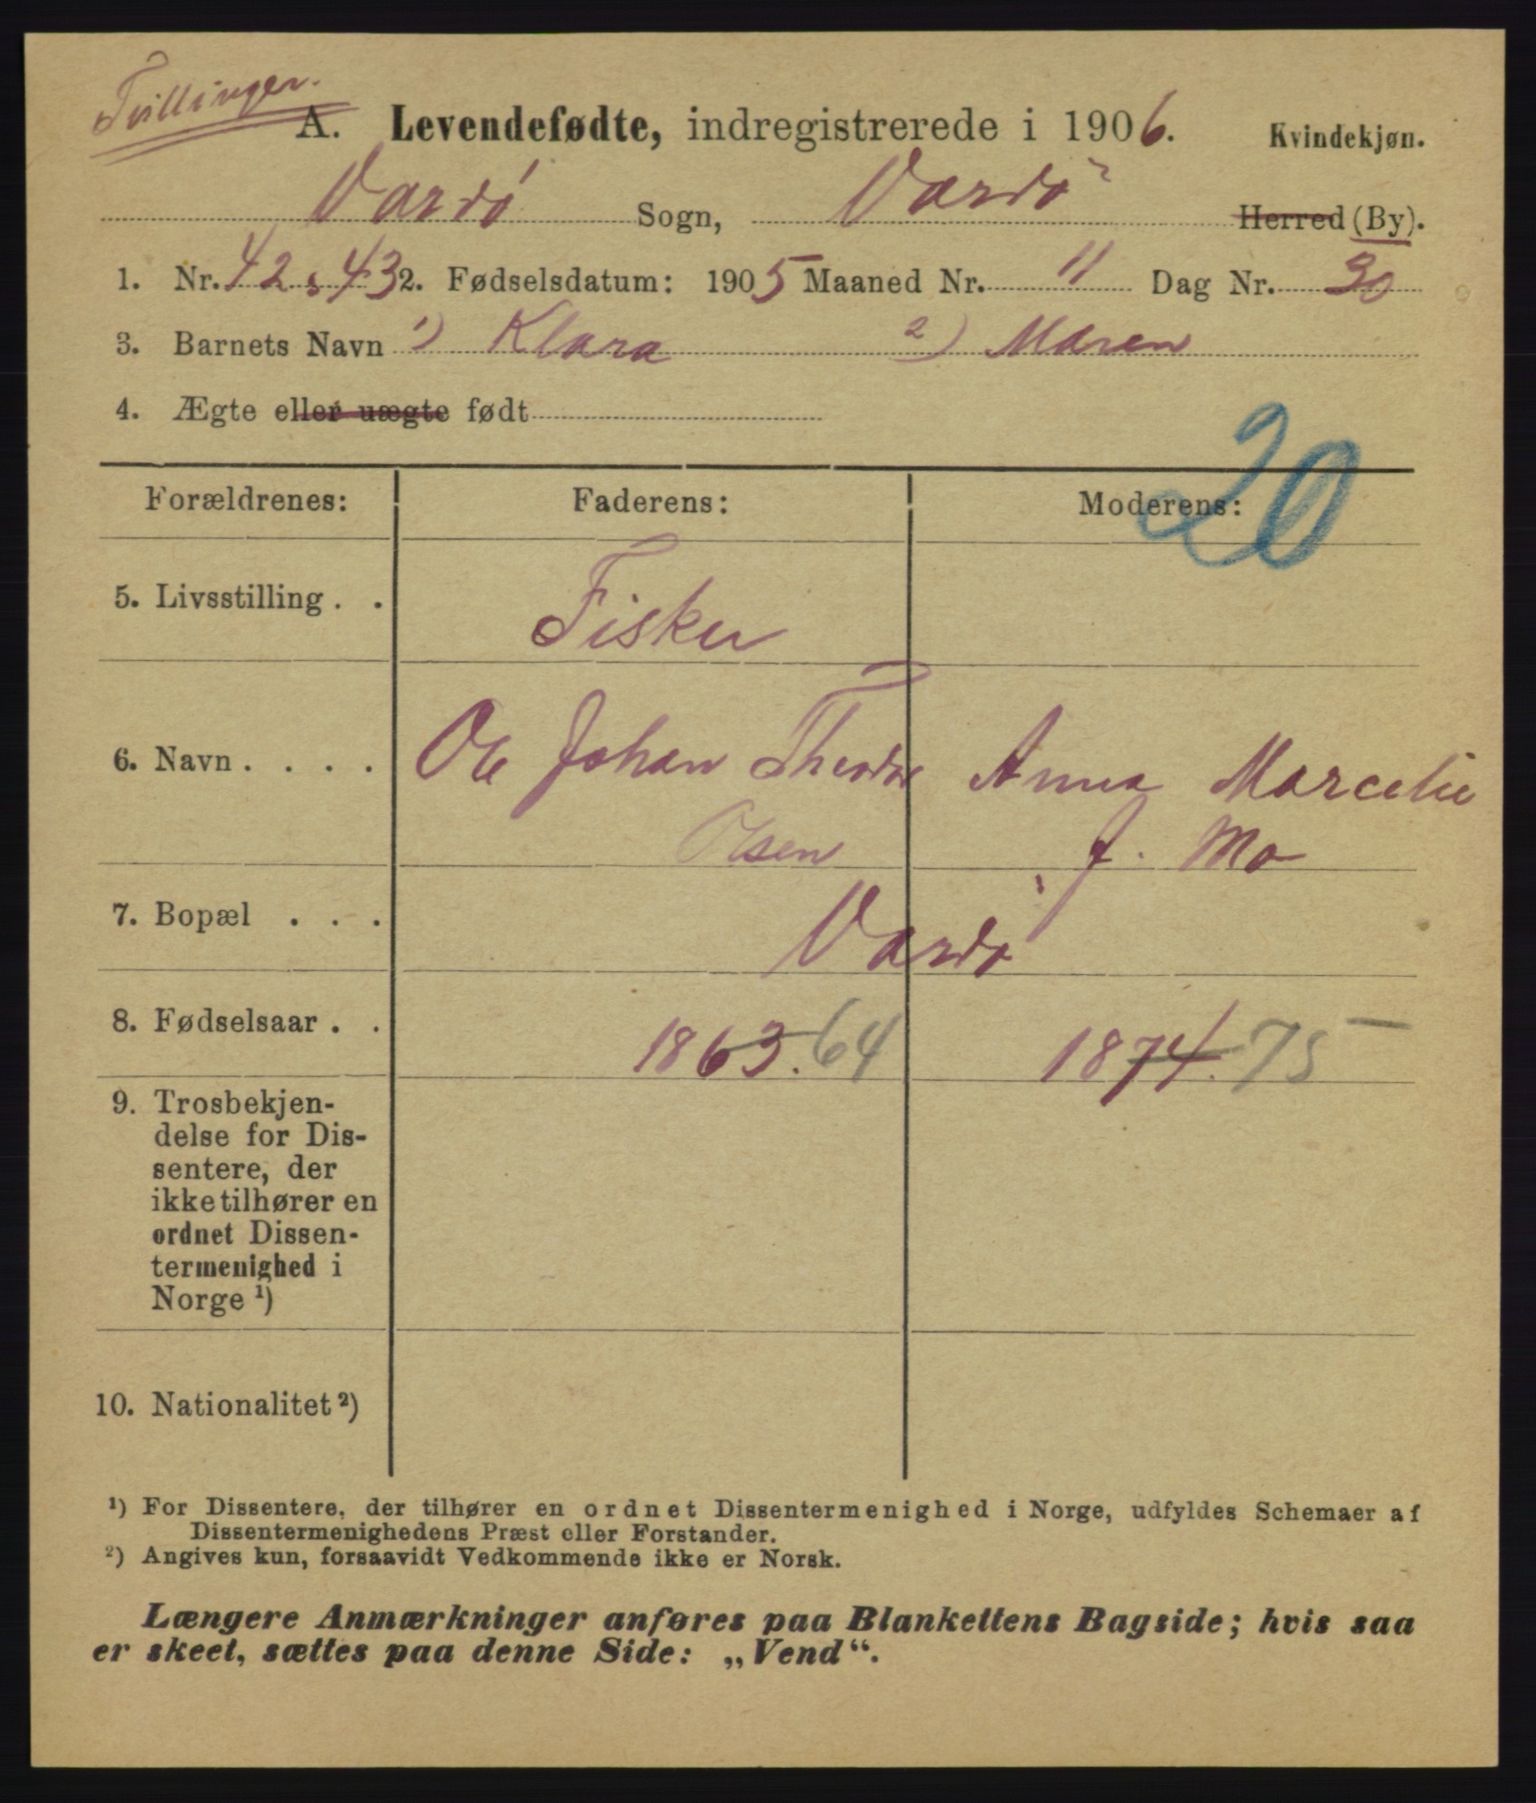 Tvillinger.
A. Levendefødte, indregistrerede i 1906. Kvindekjøn.
Vardø Sogn, Vardø Herred (By).
1. Nr. 42 & 43 2. Fødselsdatum: 1905 Maaned Nr. 11 Dag Nr. 30
3. Barnets Navn 1) Klara 2) Maren
4. Ægte eller uægte født
20
Forældrenes: Faderens: Moderens:
5. Livsstilling . . Fisker
6. Navn . . . . Ole Johan Theodor Anna Marcelie
Olsen f. Mo
7. Bopæl . . . Vardø
8. Fødselsaar . . 1863. 64 1874. 75
9. Trosbekjen-
delse for Dis-
sentere, der
ikke tilhører en
ordnet Dissen-
termenighed i
Norge ¹)
10. Nationalitet ²)
¹) For Dissentere, der tilhører en ordnet Dissentermenighed i Norge, udfyldes Schemaer af
Dissentermenighedens Præst eller Forstander.
²) Angives kun, forsaavidt Vedkommende ikke er Norsk.
Længere Anmærkninger anføres paa Blankettens Bagside; hvis saa
er skeet, sættes paa denne Side: „Vend“.